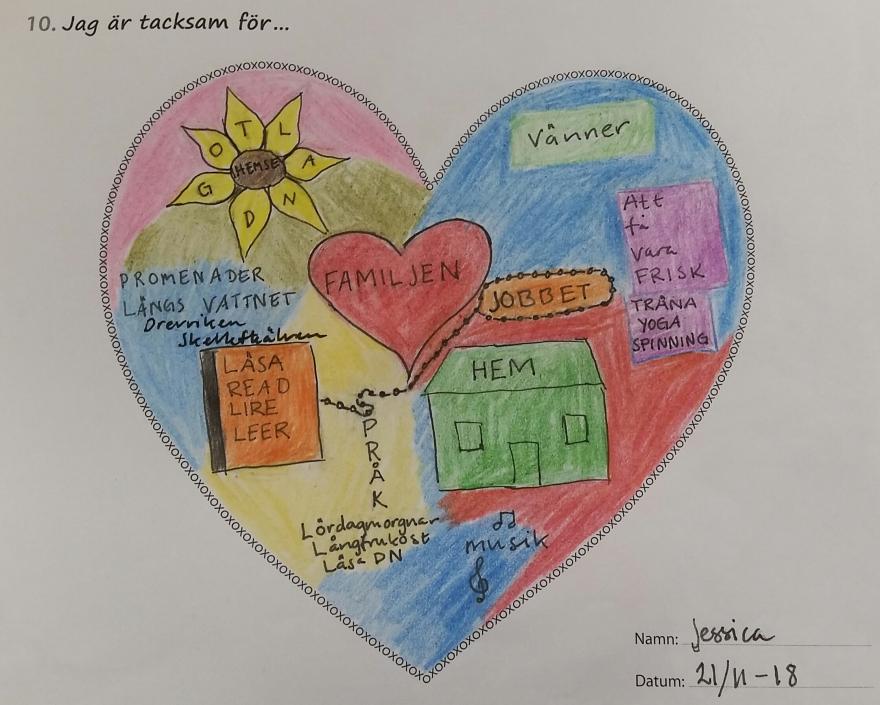 10. Jag är tacksam för...
GOTLAND
HEMSE
Vänner
Att
få
vara
FRISK
TRÄNA
YOGA
SPINNING
FAMILJEN
JOBBET
PROMENADER
LÄNGS VATTNET
Drevviken
Skellefteälven
LÄSA
READ
LIRE
LEER
HEM
SPRÅK
Lördagmorgnar
Långfrukost
Läsa DN
musik
Namn: Jessica
Datum: 21/11-18